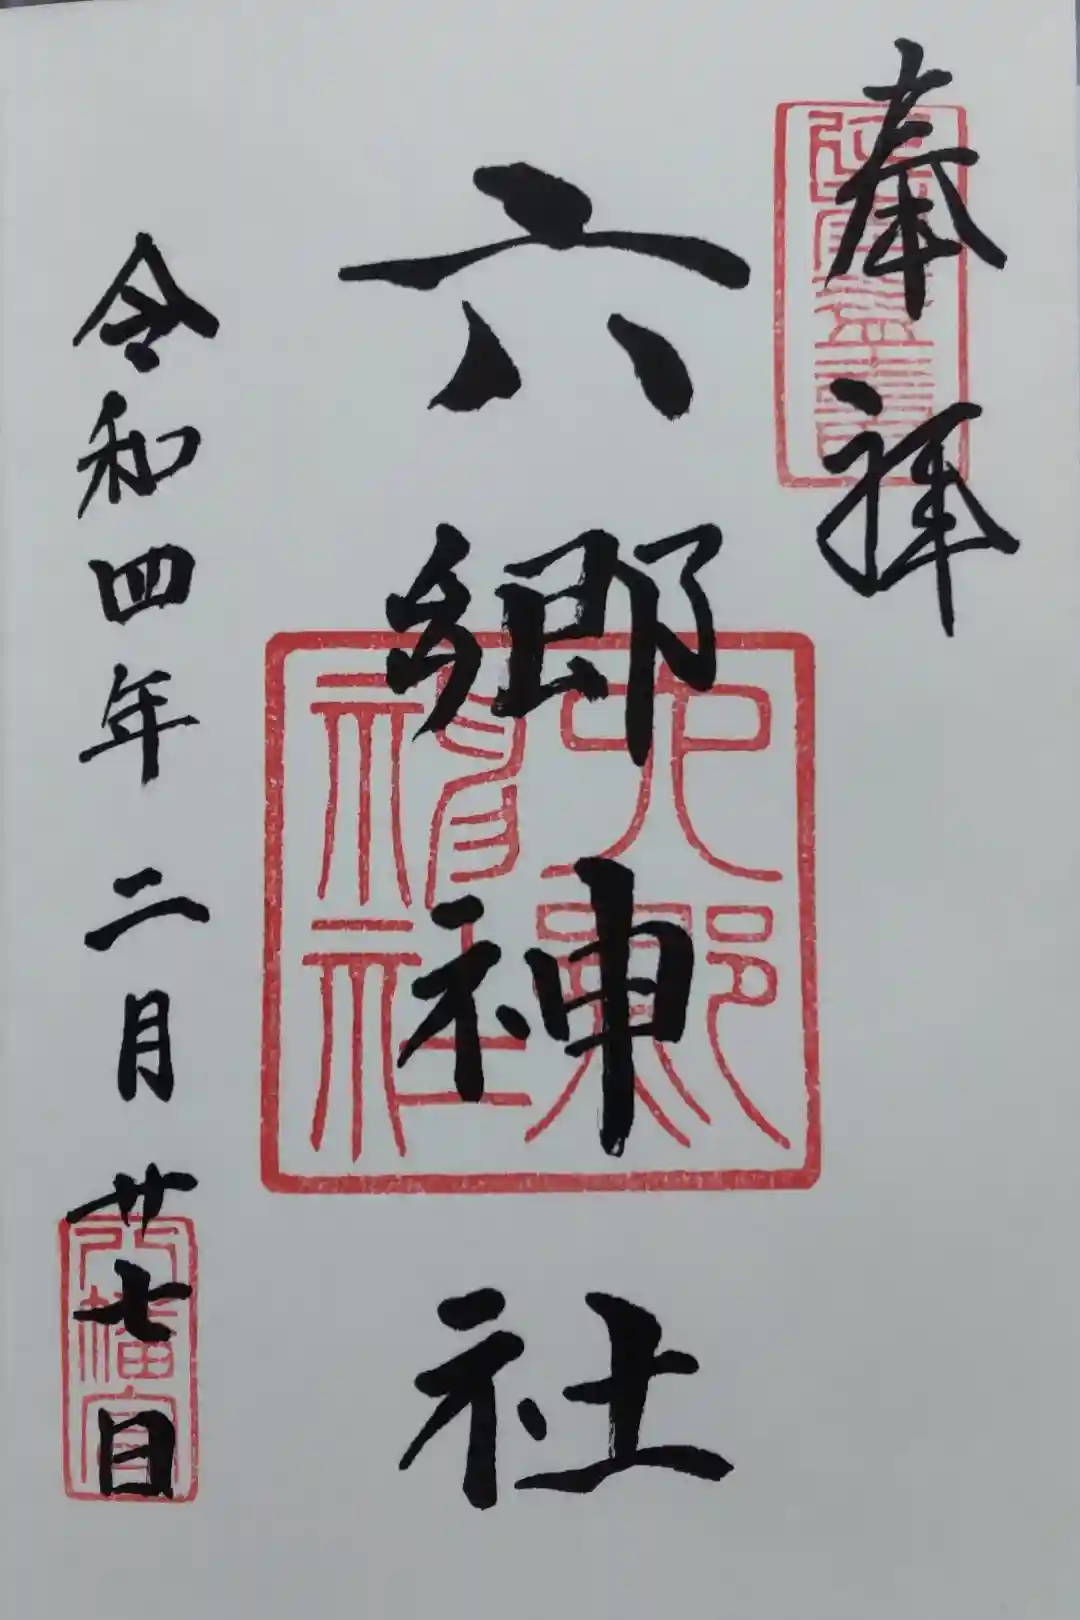 奉拝
六郷神社
六郷神社
令和四年二月廿七日
八幡宮